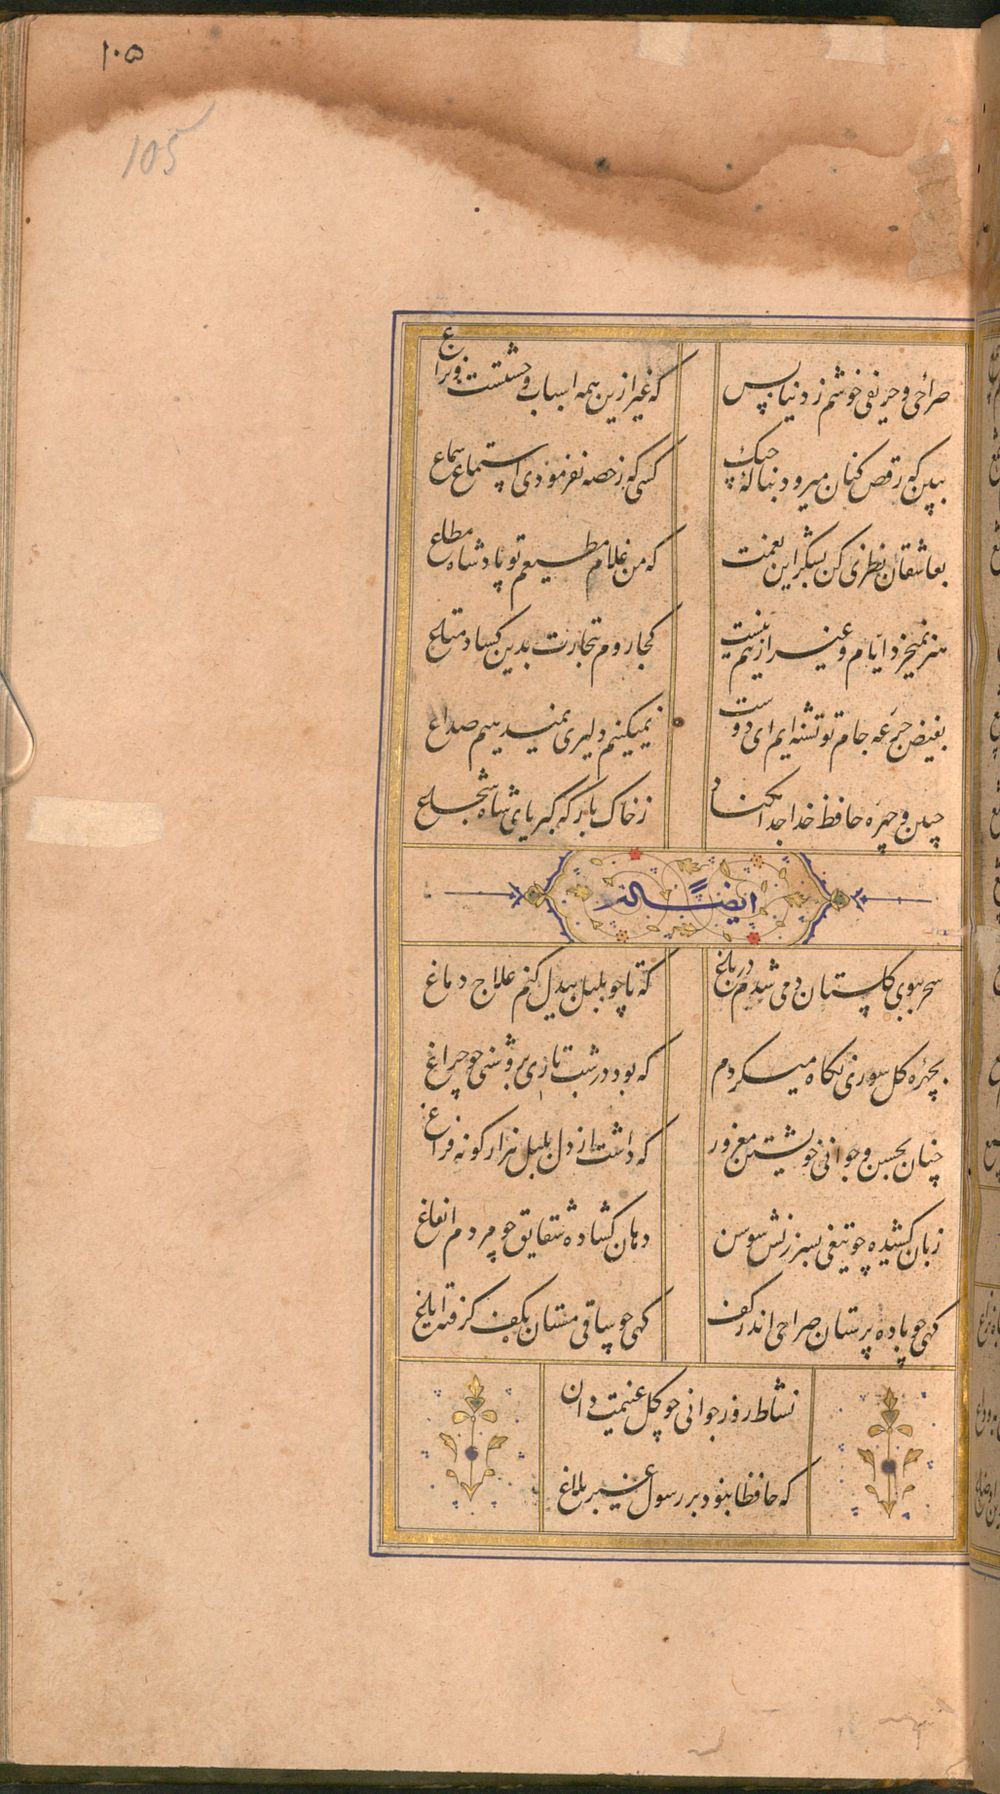 ۱۰۵
105
صراحی و حریفی خوشم ز دنیا بس
که غیر ازین همه اسباب وحشتست و نزاع
ببین که رقص کنان میرود بنالهٔ چنک
کسی که رخصه نفرمودی استماع سماع
بعاشقان نظری کن بشکر این نعمت
که من غلام مطیعم تو پادشاه مطاع
هنر نمیخرد ایام و غیر ازینم نیست
کجا روم بتجارت بدین کساد متاع
بفیض جرعه جام تو تشنه ایم ای دوست
نمیکنیم دلیری نمیدهیم صداع
جبین و چهره حافظ خدا جدا مکناد
ز خاک بارکه کبریای شاه شجاع
ایضاً له
سحر ببوی کلستان دمی شدم در باغ
که تا چو بلبل بیدل کنم علاج دماغ
بچهره کل سوری نکاه میکردم
که بود در شب تاری بروشنی چو چراغ
چنان بحسن و جوانی خویشتن مغرور
که داشت از دل بلبل هزار کونه فراغ
زبان کشیده چو تیغی بسرزنش سوسن
دهان کشاده شقایق چو مردم ایغاغ
کهی چو باده پرستان صراحی اندر کف
کهی چو ساقی مستان بکف کرفته ایاغ
نشاط روز جوانی چو کل غنیمت دان
که حافظا نبود بر رسول غیر بلاغ